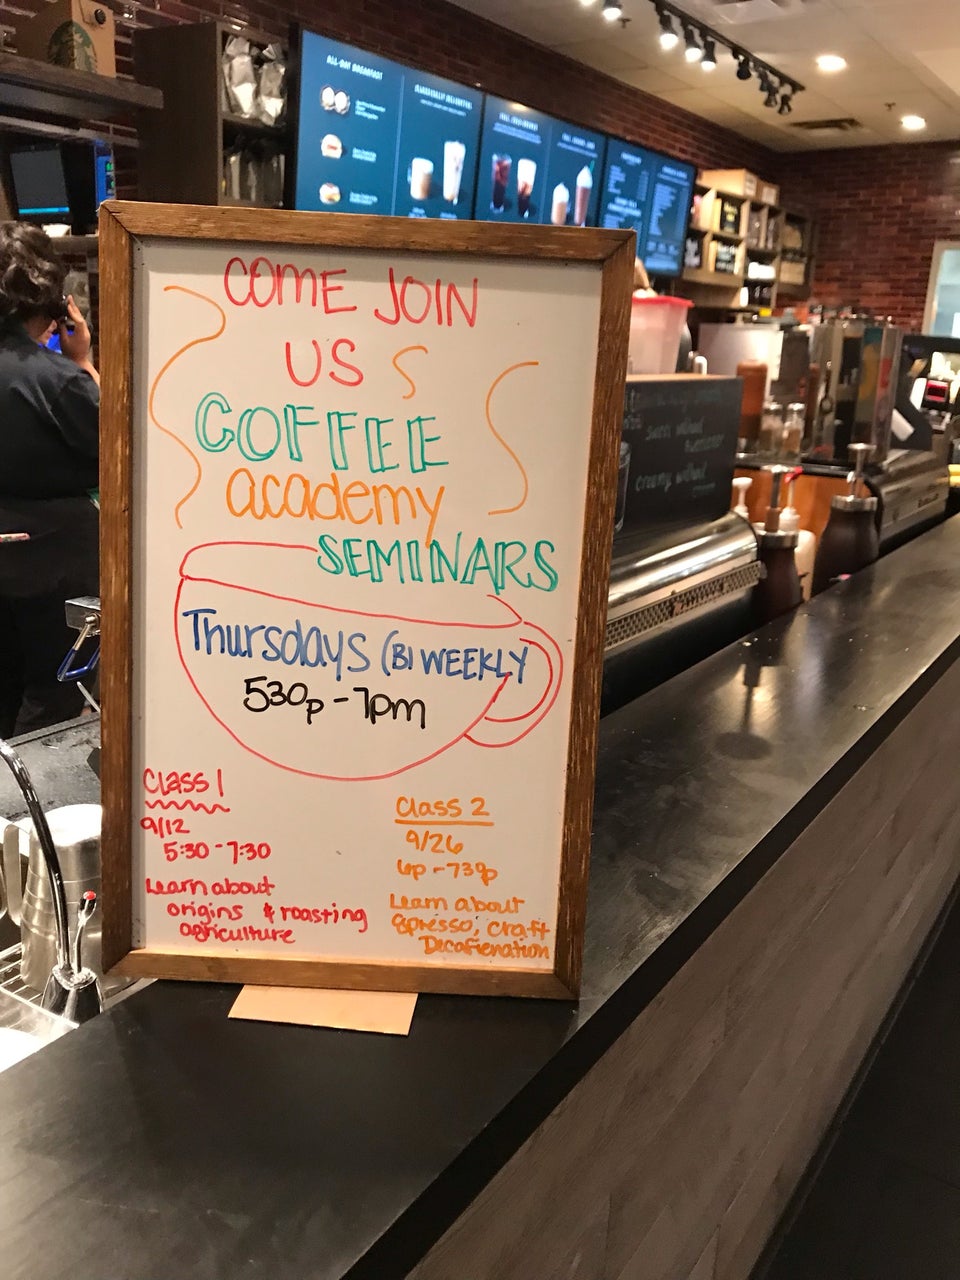 COME JOIN
US
COFFEE
academy
SEMINARS
Thursdays (BI WEEKLY
530p - 7pm
Class 1
9/12
5:30 - 7:30
Learn about
origins & roasting
agriculture
Class 2
9/26
6p - 730p
Learn about
espresso, craft
Decafienation
ALL-DAY BREAKFAST
sweet without
creamy without